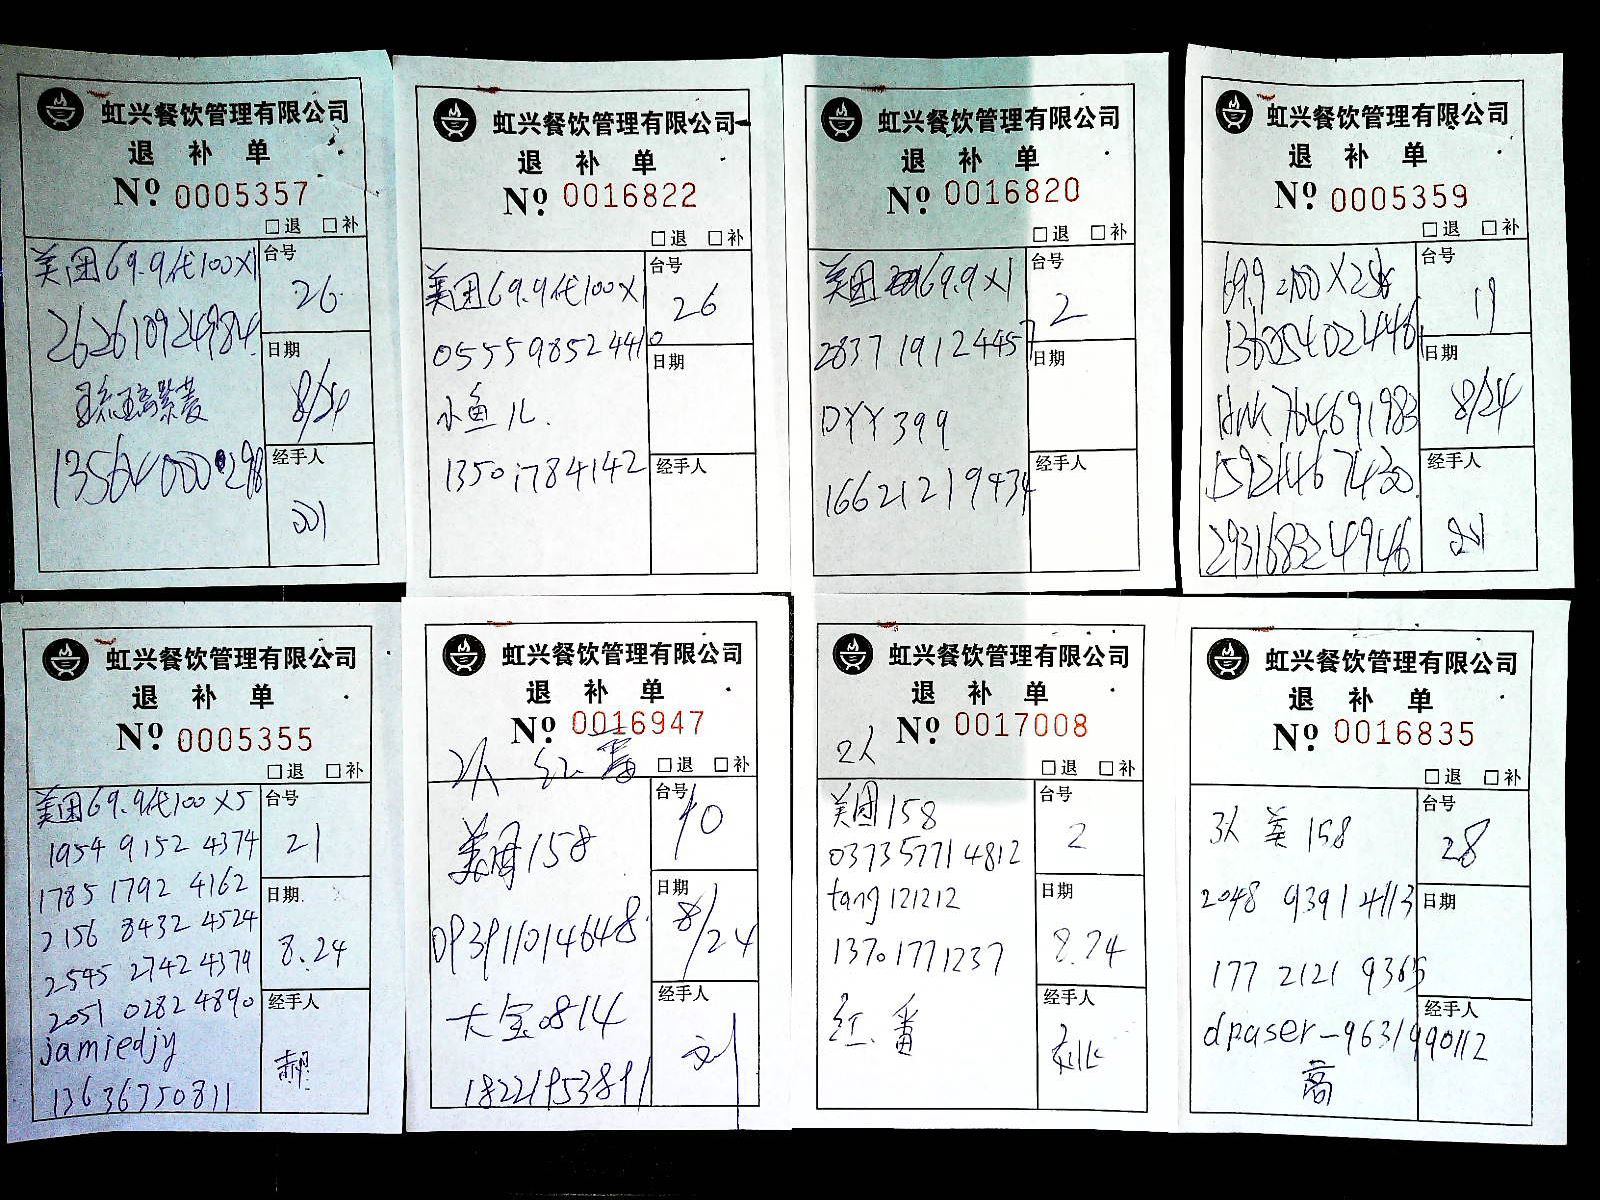 虹兴餐饮管理有限公司
退 补 单
Nº 0005357
□退 □补
美团69.9代100X1
262610924984
琉璃紫菱
台号
26
日期
8/24
经手人
虹兴餐饮管理有限公司
退 补 单
Nº 0016822
□退 □补
美团69.9代100X1
055598524410
小鱼儿.
13501784142
台号
26
日期
经手人
虹兴餐饮管理有限公司
退 补 单
Nº 0016820
□退 □补
美团69.9X1
283719124457
DYY399
16621219434
台号
2
日期
经手人
虹兴餐饮管理有限公司
退 补 单
Nº 0005359
□退 □补
293168324946
台号
19
日期
8/24
经手人
虹兴餐饮管理有限公司
退 补 单
Nº 0005355
□退 □补
美团69.9代100X5
1954 9152 4374
1785 1792 4162
2156 8432 4524
2545 2742 4379
2051 0282 4890
jamiedjy
13636350811
台号
21
日期
8.24
经手人
郝
虹兴餐饮管理有限公司
退 补 单
Nº 0016947
2人 红番
□退 □补
美团158
093911014648
大宝0814
18221953891
台号
10
日期
8/24
经手人
刘
虹兴餐饮管理有限公司
退 补 单
Nº 0017008
2人
□退 □补
美团158
037357714812
tang121212
13701771237
红番
台号
2
日期
8.24
经手人
虹兴餐饮管理有限公司
退 补 单
Nº 0016835
□退 □补
3人 美158
2048 9391 4113
177 2121 9365
dpaser-9631990112
商
台号
28
日期
经手人